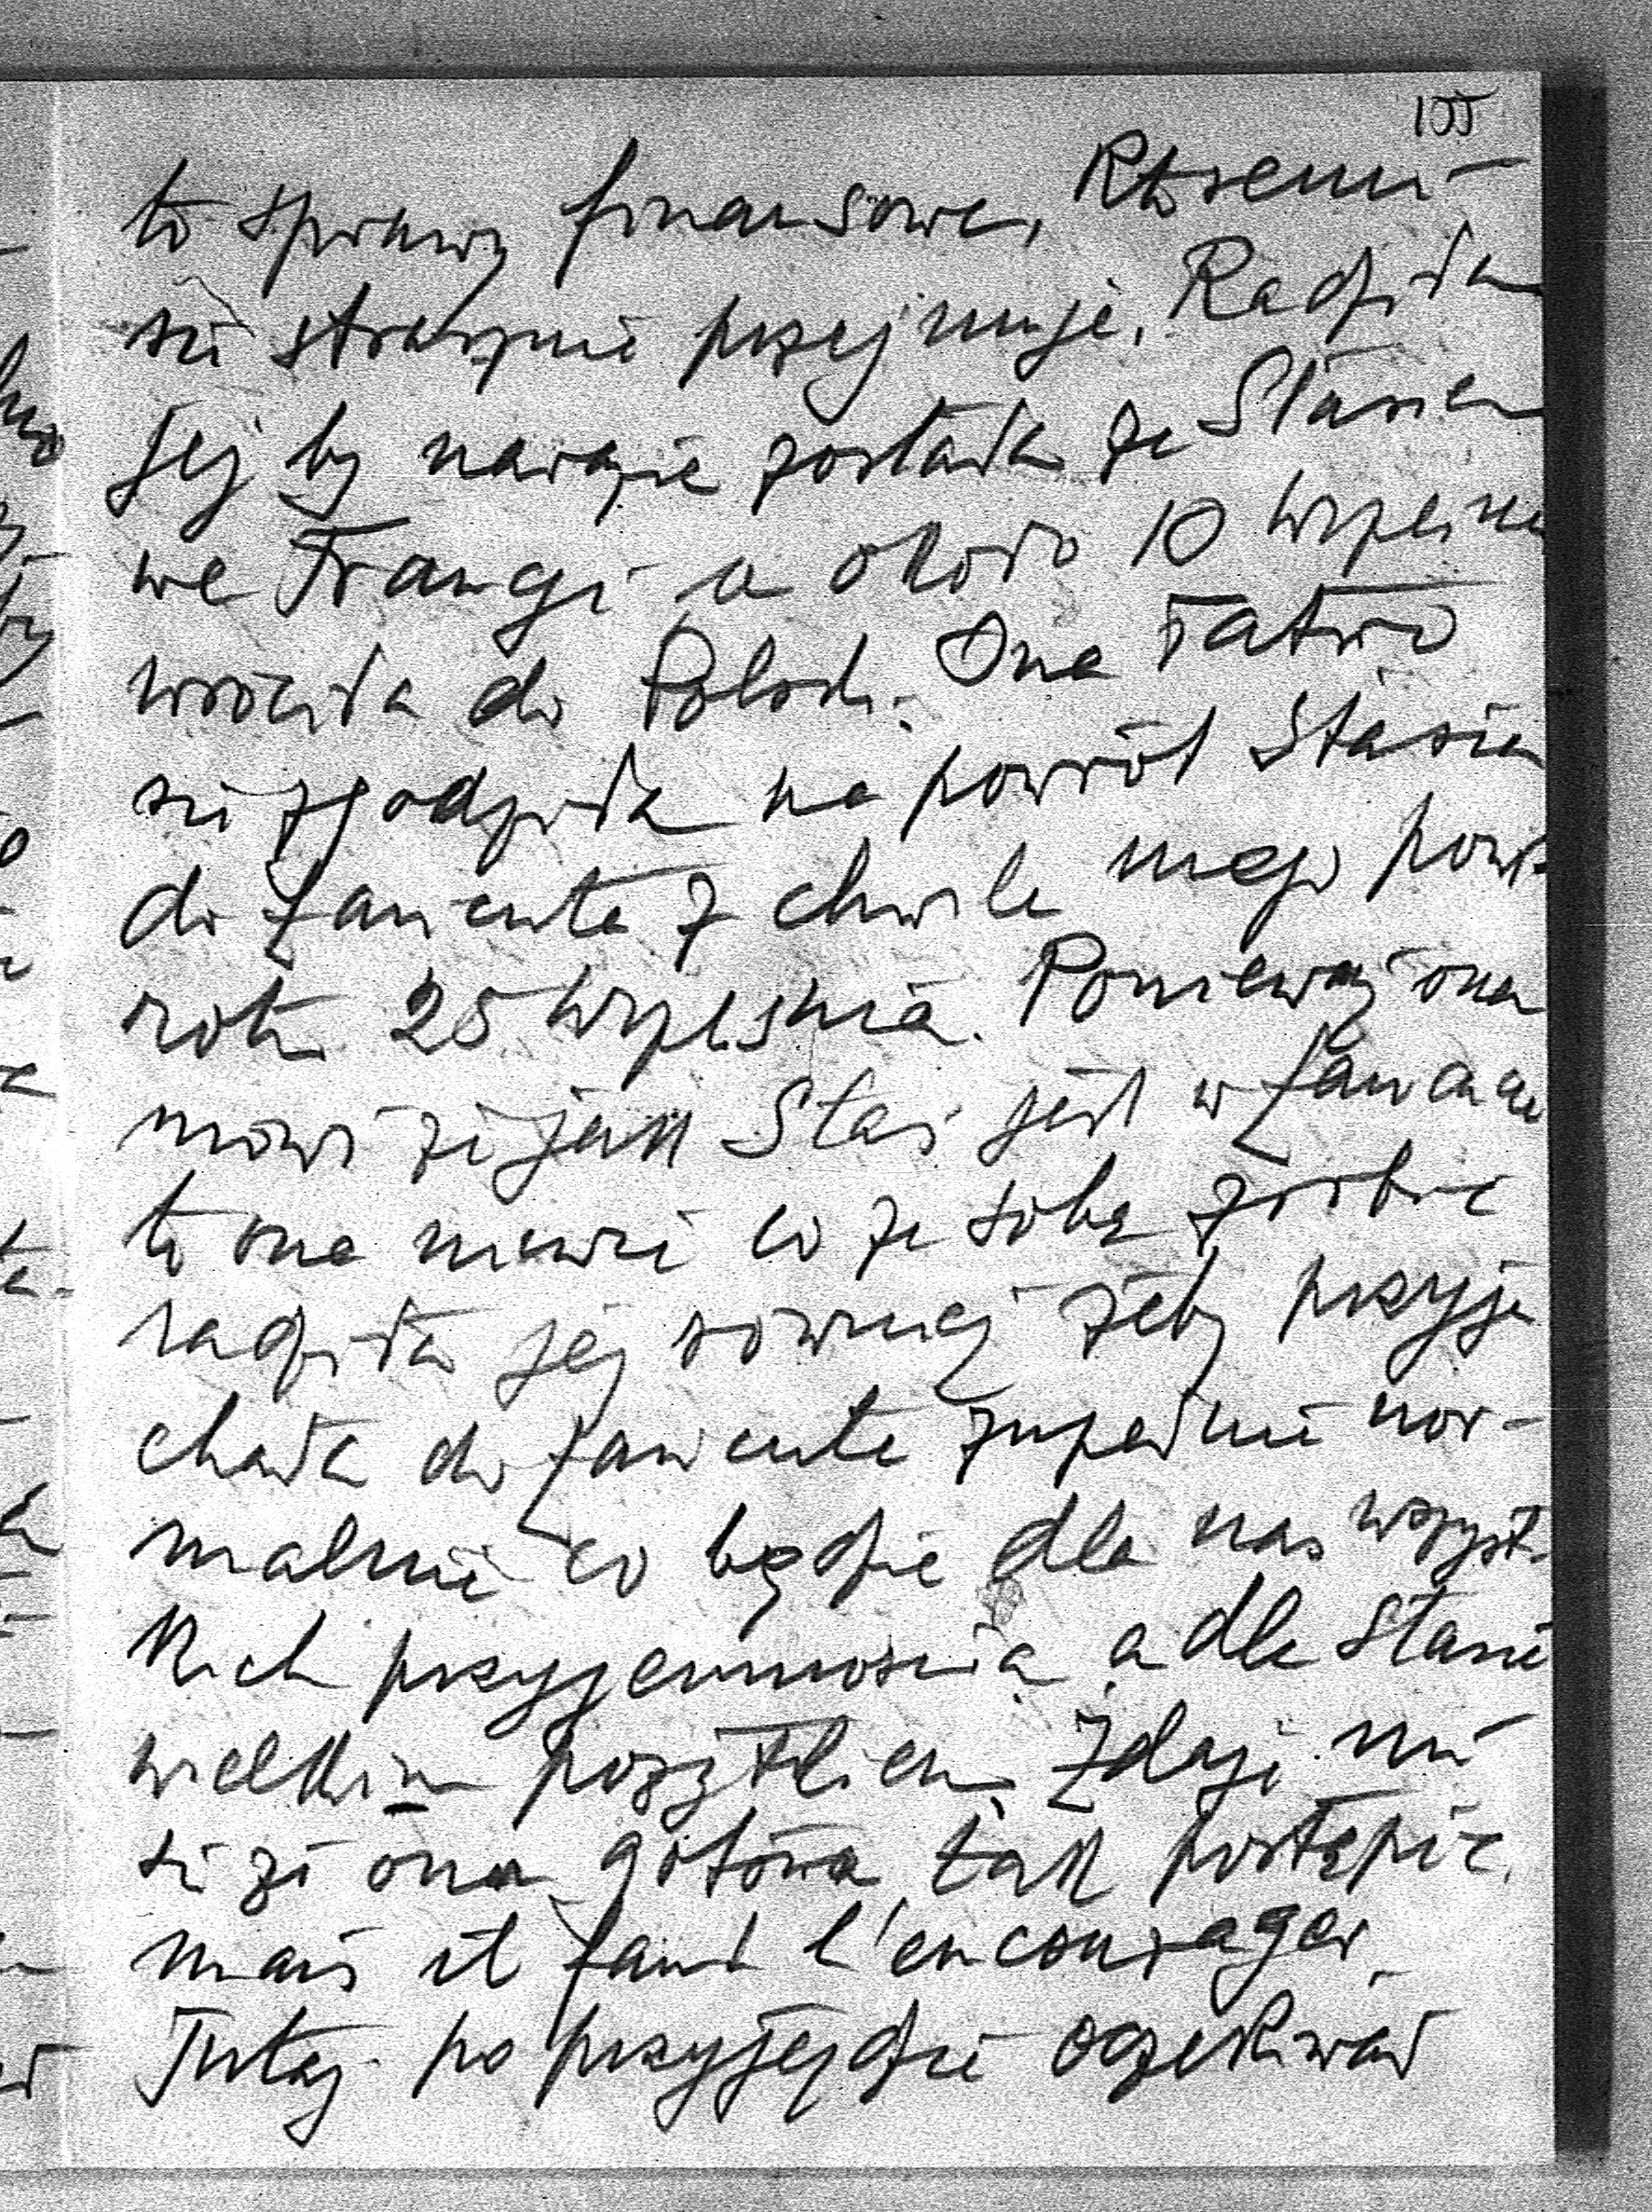 155
to sprawy finansowe, któremi
się strasznie przejmuje. Radziła
jej by narazie została ze Stasiem
we Francji a około 10 wrześnie
wróciła do Polski. Ona łatwo
się zgodziła na powrót Stasia
do Łańcuta z chwilą mego pow-
rotu 25 września. Ponieważ ona
mówi że jak Staś jest w Łańcucie
to ona niewie co ze sobą zrobić
radziła jej również żeby przyje
chała do Łańcuta zupełnie nor-
malnie co będzie dla nas wszyst-
kich przyjemnością, a dla Stasia
wielkim pożytkiem. Zdaje mi
się że ona gotowa tak postąpić.
mais il faut l'encourager
Tutaj po przyjeździe oczekiwał